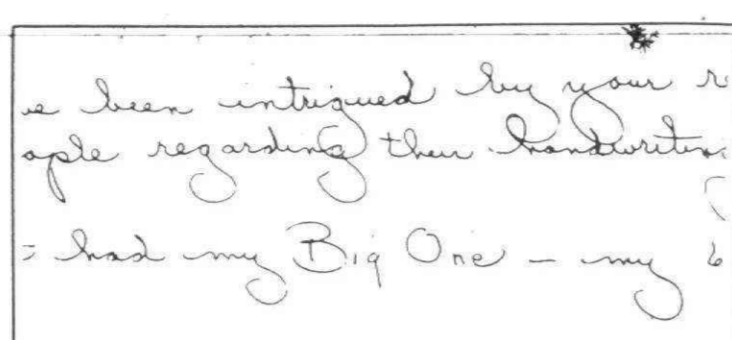 ve been intrigued by your r
ople regarding their handwritin
I had my Big One – my 6